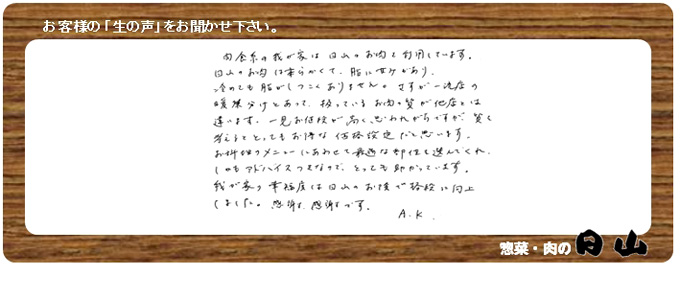 お客様の「生の声」をお聞かせ下さい。
肉食系の我が家は日山のお肉を利用しています。
日山のお肉は柔らかくて、脂に甘みがあり、
冷めても脂がしつこくありません。さすが一流店の
暖簾分けとあって、扱っているお肉の質が他店とは
違います。一見お値段が高く思われがちですが、質を
考えるととってもお得な価格設定だと思います。
お料理のメニューにあわせて最適な部位を選んでくれ、
しかもアドバイスつきなので、とっても助かっています。
我が家の幸福度は日山のお陰で格段に向上
しました。感謝、感謝です。
A.K.
惣菜・肉の日山